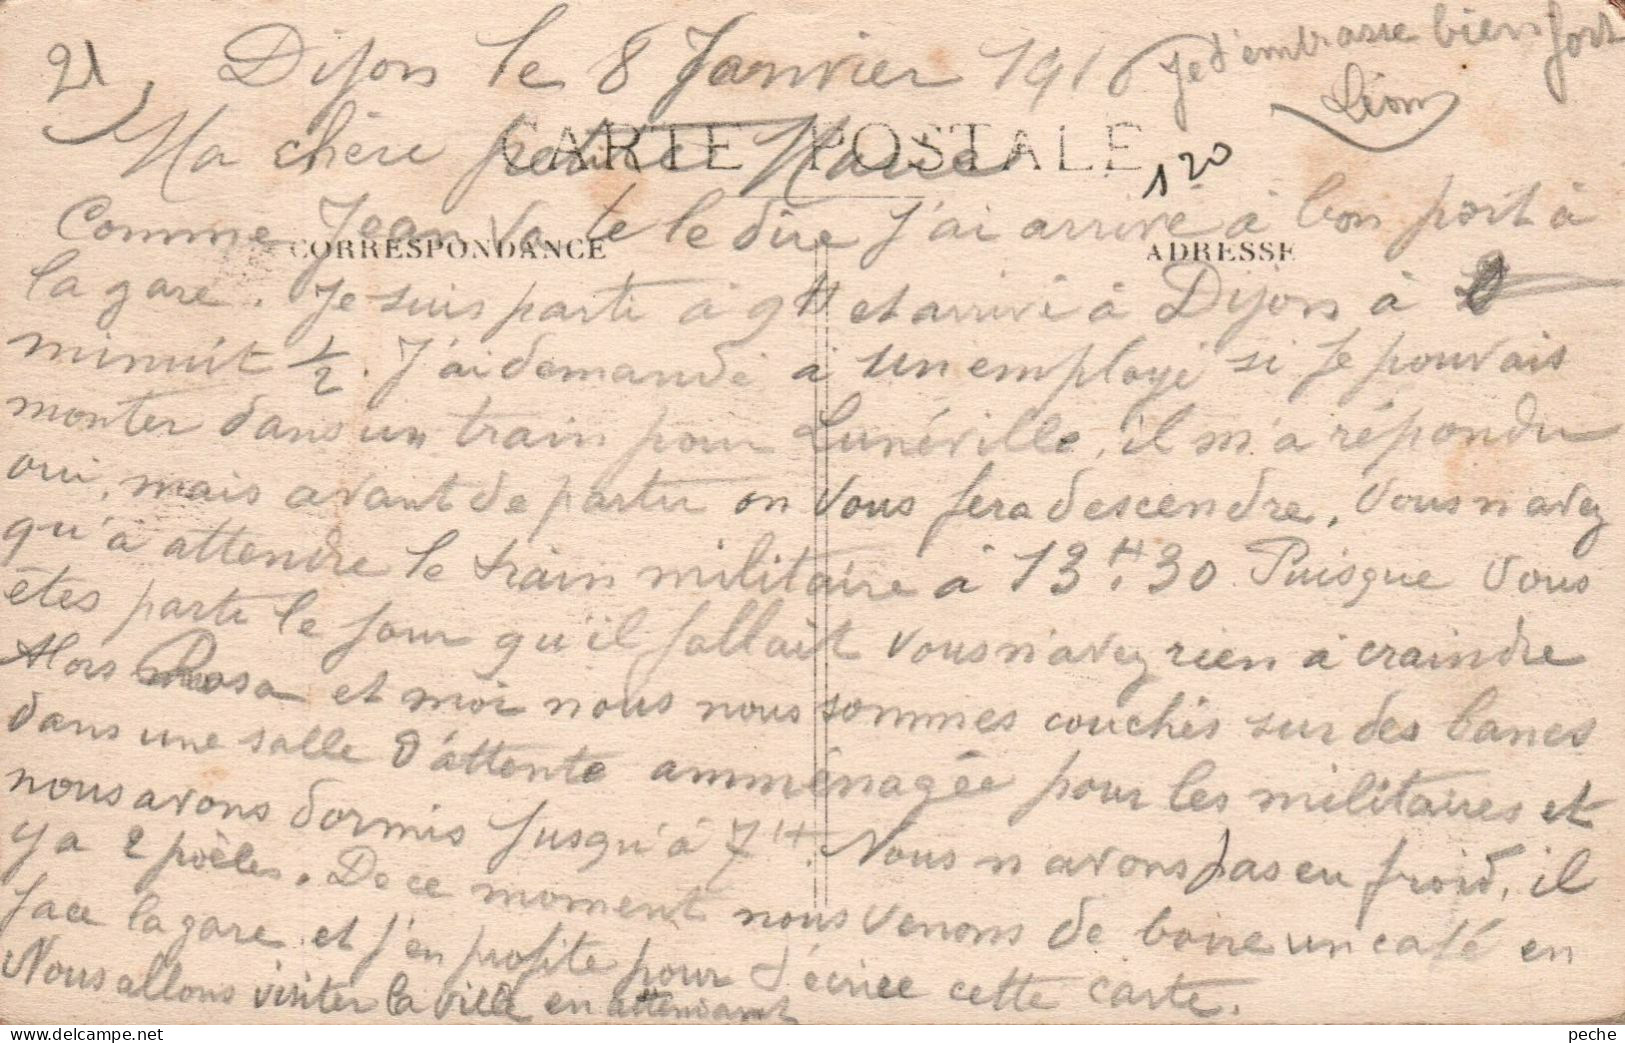 21
Dijon le 8 Janvier 191
Je t'embrasse bien fort
Léon
CARTE POSTALE
Ma chère petite
120
CORRESPONDANCE
ADRESSE
Comme Jean va te le dire J'ai arrivé à bon port à
la gare. Je suis parti à 9H et arrivé à Dijon à
minuit 1/2. J'ai demandé à un employé si je pouvais
monter dans un train pour Lunéville, il m'a répondu
oui, mais avant de partir on vous fera descendre, vous n'avez
qu'à attendre le train militaire à 13H.30 Puisque vous
êtes parti le jour qu'il fallait vous n'avez rien à craindre
Alors Rosa et moi nous nous sommes couchés sur des bancs
dans une salle d'attente amménagée pour les militaires et
nous avons dormis jusqu'à 7H. Nous n'avons pas eu froid, il
y a 2 poêles. De ce moment nous venons de boire un café en
face la gare et j'en profite pour t'écrire cette carte.
Nous allons visiter la ville en attendant
peche